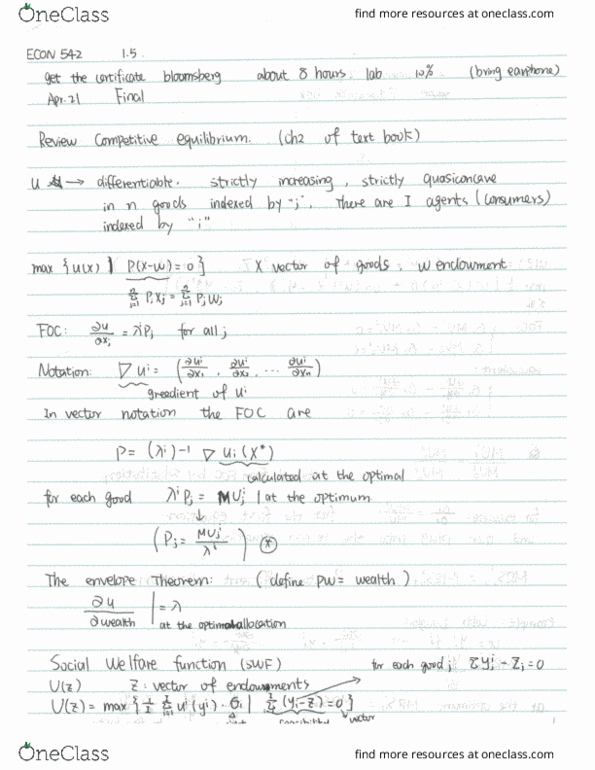 OneClass
find more resources at oneclass.com
ECON 542 1.5.
get the certificate bloomsberg about 8 hours. lab 10% (bring earphone)
Apr. 21 Final
Review Competitive equilibrium. (ch2 of text book)
u → differentiable. strictly increasing, strictly quasiconcave
in n goods indexed by "j". There are I agents (consumers)
indexed by "i"
max {u(x) | P(x-w)=0} X vector of goods. w endowment
Σ PjXj = Σ PjWj
FOC: ∂u/∂xj = λPj for all j
Notation: ∇ui = (∂ui/∂x1, ∂ui/∂x2, ... ∂ui/∂xn)
greadient of ui
In vector notation the FOC are
P = (λi)-1 ∇ ui (X*)
calculated at the optimal
for each good λi Pj = MUj | at the optimum
(Pj = MUj/λi) *
The envelope Theorem: (define PW = wealth)
∂u/∂wealth | = λ
at the optimal allocation
Social Welfare function (SWF) for each good j Σyji - Zj = 0
U(z) Z: vector of endowments
U(z) = max { Σ ui (yi) · θi | Σ (yi-z) = 0 }
vector
1
OneClass
find more resources at oneclass.com